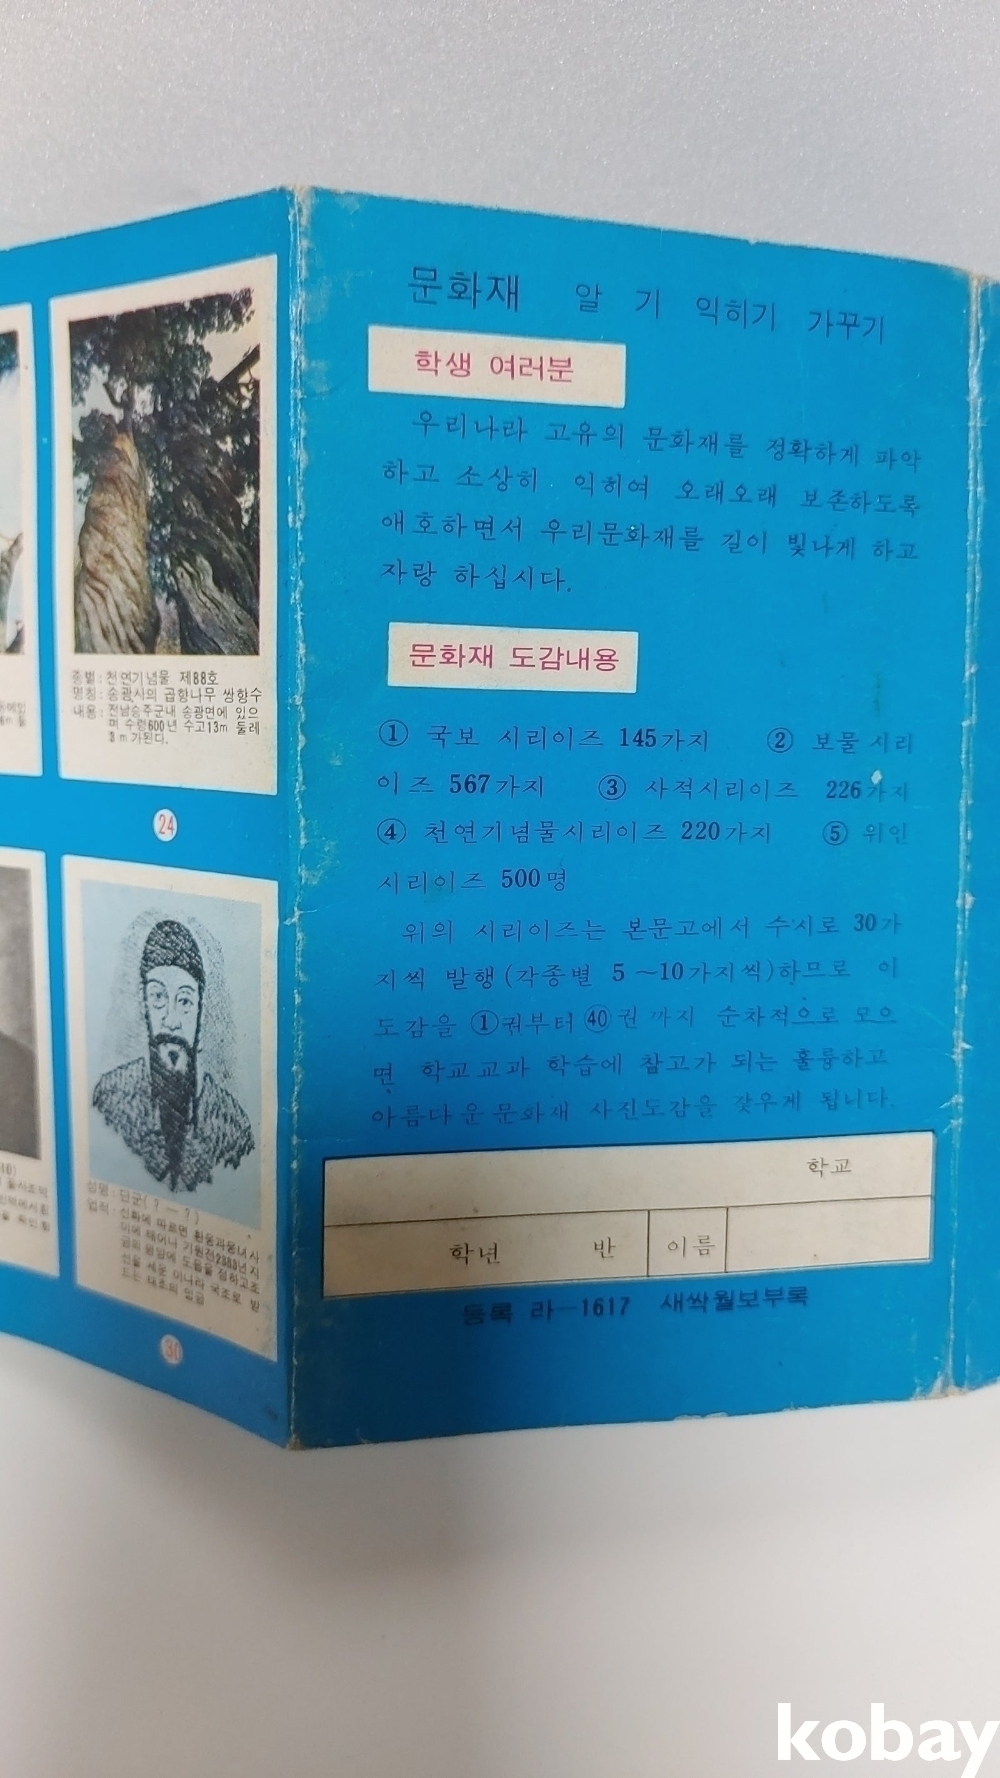 문화재 알 기 익히기 가꾸기
학생 여러분
우리나라 고유의 문화재를 정확하게 파악
하고 소상히 익히여 오래오래 보존하도록
애호하면서 우리문화재를 길이 빛나게 하고
자랑 하십시다.
문화재 도감내용
① 국보 시리이즈 145가지 ② 보물 시리
이즈 567가지 ③ 사적시리이즈 226가지
④ 천연기념물시리이즈 220가지 ⑤ 위인
시리이즈 500명
위의 시리이즈는 본문고에서 수시로 30가
지씩 발행(각종별 5~10가지씩)하므로 이
도감을 ①권부터 ㊵권 까지 순차적으로 모으
면 학교교과 학습에 참고가 되는 훌륭하고
아름다운문화재 사진도감을 갖우게 됩니다.
학교
학년 반 이름
등록 라—1617 새싹월보부록
종별:천연기념물 제88호
명칭:송광사의 곱향나무 쌍향수
내용:전남승주군내 송광면에 있으
며 수령600년 수고13m 둘레
3m가된다.
24
성명:단군(?—?)
업적:신화에 따르면 환웅과웅녀사
이에 태어나 기원전2333년지
선을 세운 이나라 국조로 받
드는 태초의 임금
30
kobay